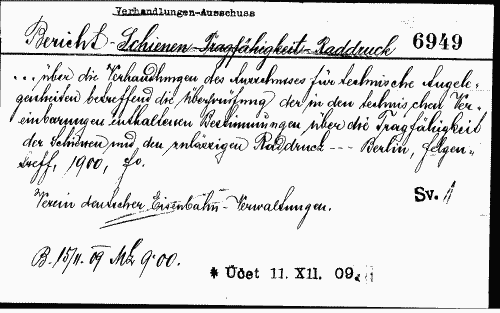 Verhandlungen-Ausschuss
Bericht - Schienen - Tragfähigkeit - Raddruck 6949
... über die Verhandlungen des Ausschusses für technische Angele-
genheiten betreffend die Überprüfung der in den technischen Ver-
einbarungen enthaltenen Bestimmungen über die Tragfähigkeit
der Schienen und den zulässigen Raddruck --- Berlin,
1900, fo.
Verein deutscher Eisenbahn-Verwaltungen.
Sv.
B. 15/11. 09 Mk 9.00.
* Ücet 11. XII. 09.